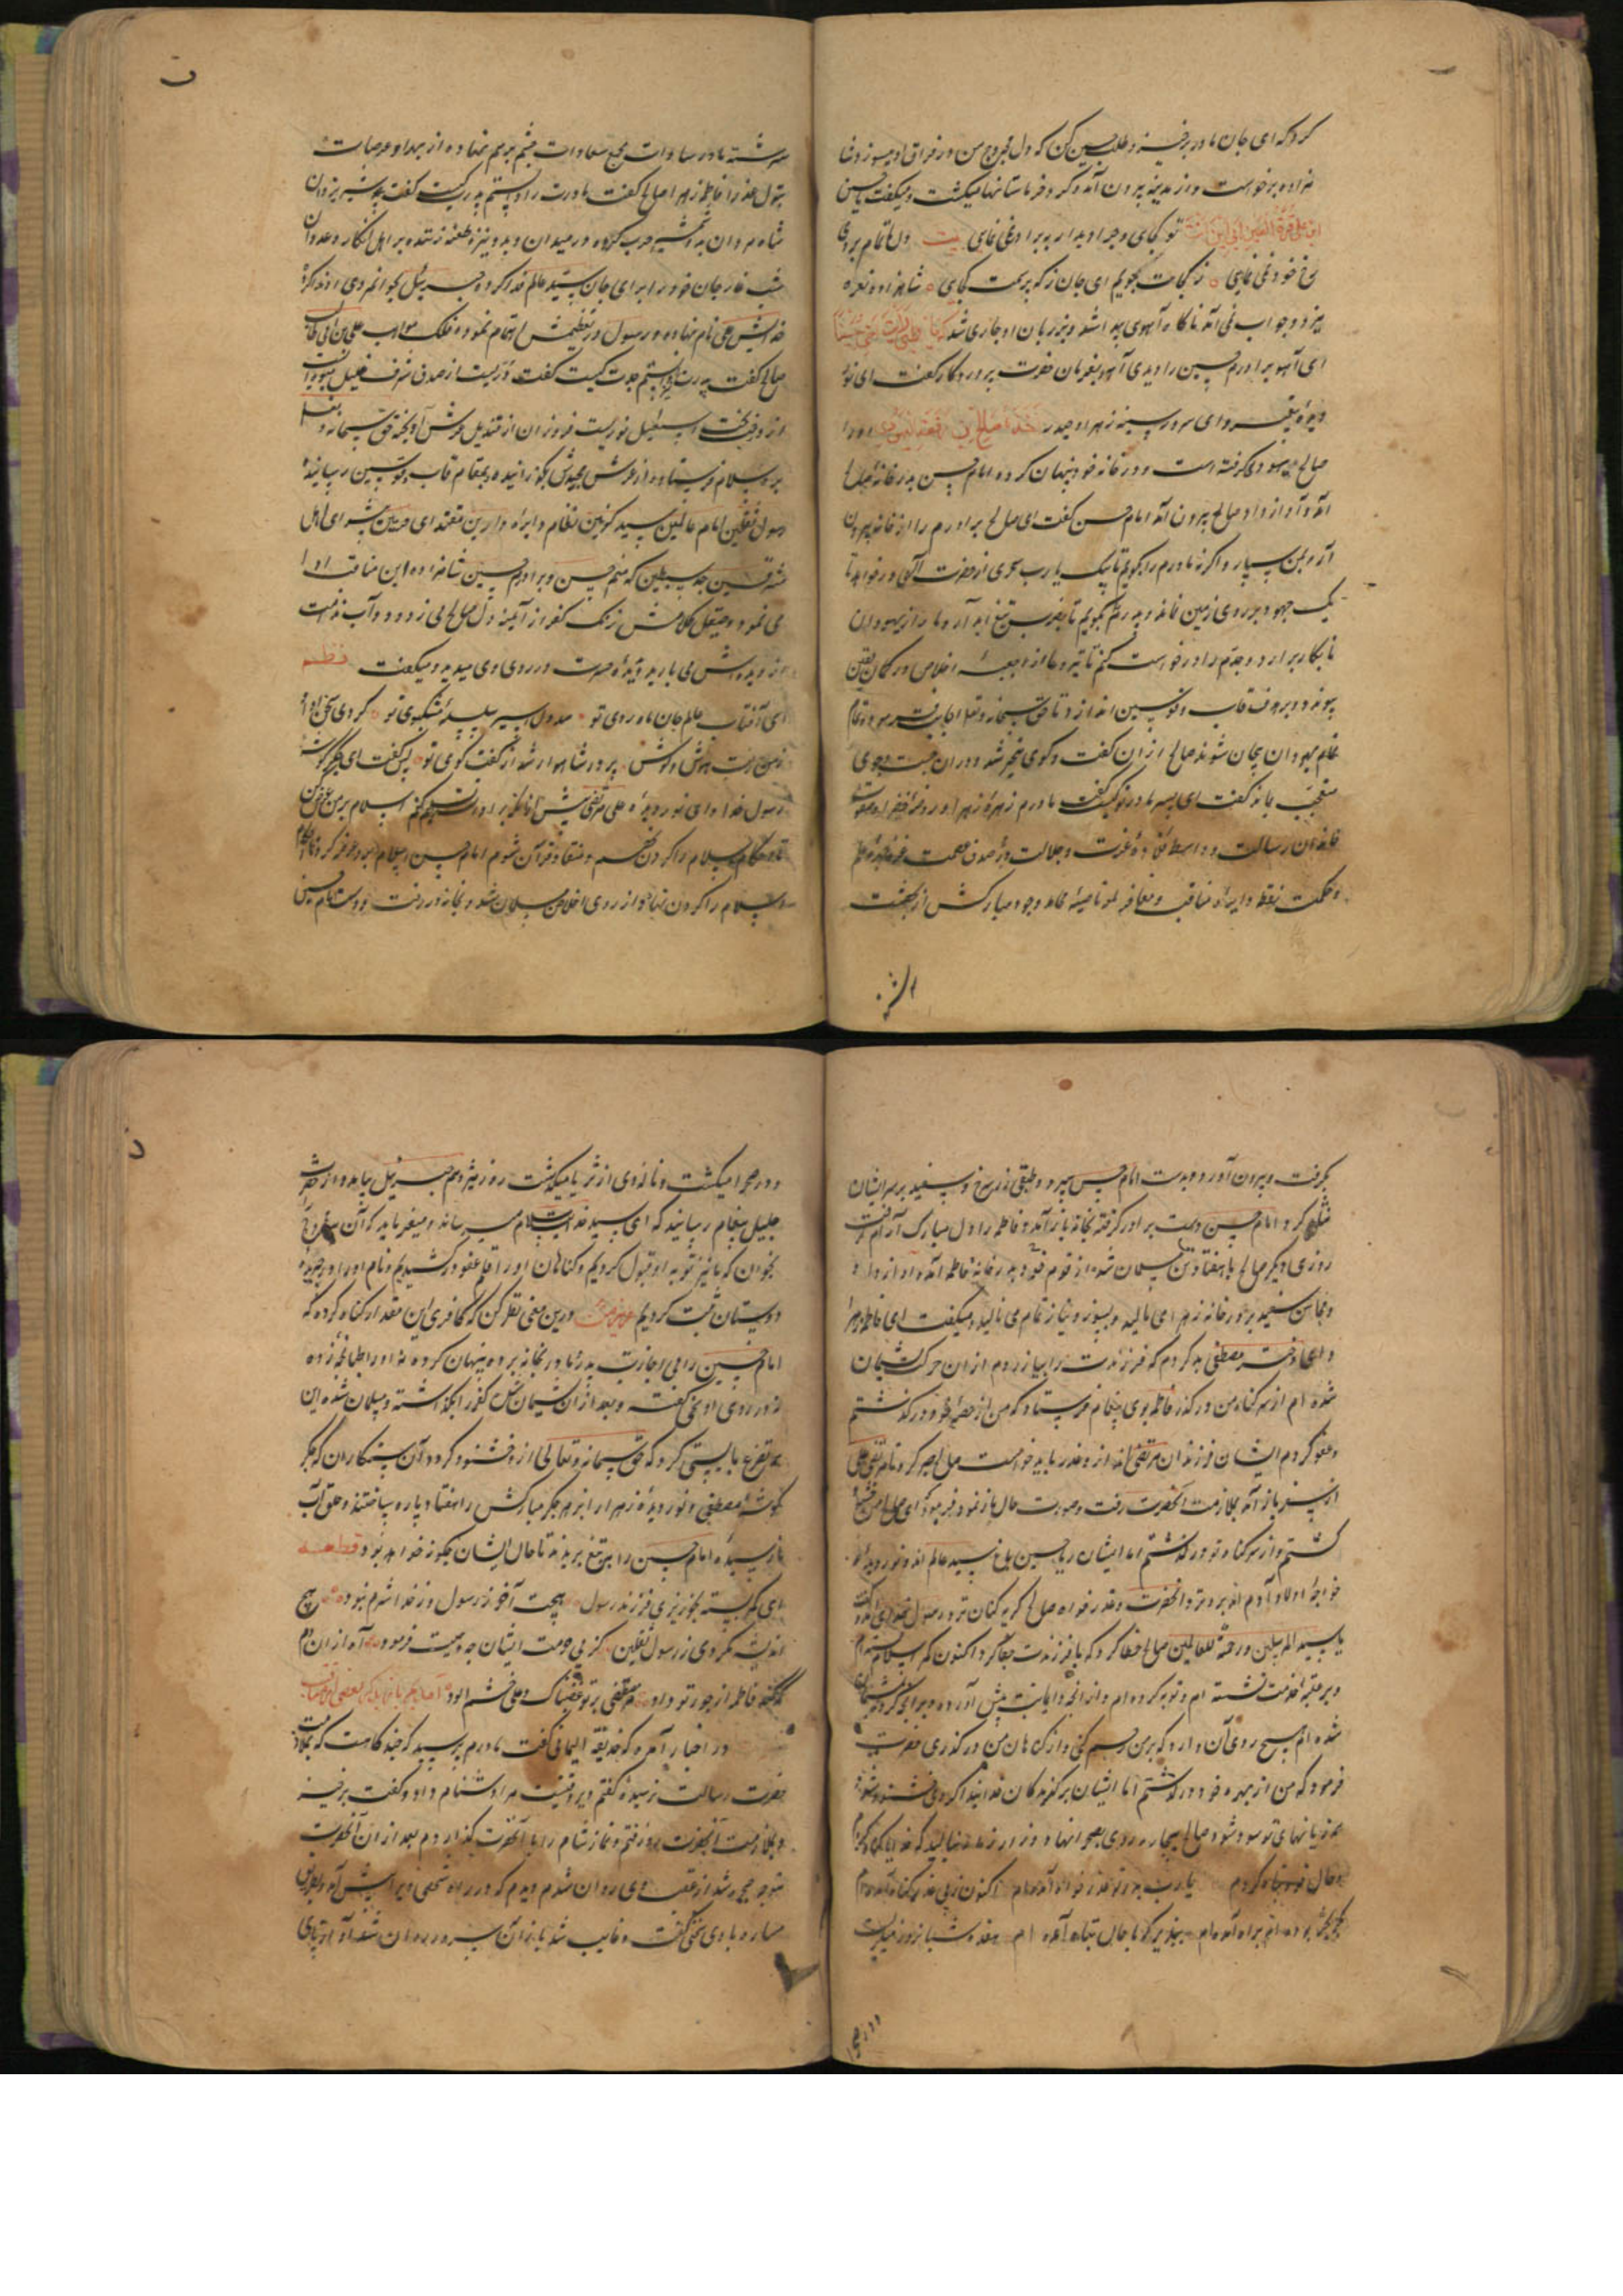 کرد که ای جان مادر برخیز و طلب حسین کن که دل مجروح من در فراق او میسوزد شا
هزاده برخواست و از مدینه بیرون آمد و گرد خرماستانها میگشت و میگفت یا حسین
ابن علی قرة العین النبی این انت تو کجایی و چرا دیدار به برادر نمی نمایی بیت دل
رخ خود نمی نمایی ز کجات بجویم ای جان ز که پرسمت کجایی شاهزاده نعره
میزد و جواب نمی آمد ناگاه آهوی پیدا شد و بر زبان او جاری شد که یا ظبی
ای آهو برادرم حسین را دیدی آهو بفرمان حضرت پروردگار گفت ای نور
دیده و ای سرور سینه زهرا و حیدر اخذه صالح او را
صالح یهودی گرفته است و در خانه خود پنهان کرده امام حسن بدر خانه صالح
آمد و آواز داد صالح بیرون آمد امام حسن گفت ای صالح برادرم را از خانه بیرون
آر و بمن سپار و اگر نه مادرم را بگویم تا بیک یارب سحری از حضرت در خواهد تا
یک جهود بر روی زمین نماند و پدرم را بگویم تا بضرب تیغ
و جدم را درخواست کنم تا تیر دعا از جعبه اخلاص در کمان یقین
پیوندد و بر هدف قاب قوسین اندازد تا حق سبحانه و تعالی
بیجان شوند صالح از آن گفت و گوی متحیر شد و در آن جست و جوی
متعجب بماند گفت ای پسر مادر تو کیست گفت مادرم زهره زهرا و روضه خضرا
خاندان رسالت و واسطه قلاده عزت و جلالت و دره صدف عصمت
و حکمت نقطه دایره مناقب و مفاخر وجود مبارکش از بهشت
سرشته مادر سادات مجمع سعادات
بتول عذرا فاطمه زهرا صالح گفت مادرت را دانستم پدر کیست گفت شیر یزدان
شاه مردان بدو شمشیر حرب کرده در میدان و بدو نیزه طعنه زننده بر اهل انکار و عدوان
شب غار جان خود را برای جان سید عالم فدا کرده جبرئیل بجوانمردی او ندا کرده
خدایش علی نام نهاده و رسول در تعظیمش اهتمام نموده علی بن ابی طالب
صالح گفت پدرت را دانستم جدت کیست گفت دریست از صدف شرف خلیل
از درخت اسمعیل نوریست فروزان از قندیل عرش آویخته حق سبحانه و تعالی
او را سلام فرستاده و از عرش مجیدش بگذرانیده و بمقام قاب قوسین رسانیده
رسول ثقلین امام عالمین سید کونین نظام دایره دارین مقتدای حرمین
مشرقین جد سبطین که منم حسن و برادرم حسین شاهزاده این مناقب ادا
می نمود و صیقل کلامش زنگ کفر از آینه دل صالح می زدود و آب ندامت
از دیده اش می بارید و بدیده حیرت در روی وی میدید و میگفت نظم
ای آفتاب عالم جان ماه روی تو صد دل اسیر سلسله مشکبوی تو کردی سخن ادا
گوش پر در شاهوار شد از گفت گوی تو پس گفت ای جگر گوشه
رسول خدا و ای نور دیده علی مرتضی پیش از آنکه برادرت تسلیم کنم اسلام بر من عرض کن
تا احکام اسلام را گردن نهم و منقاد فرمان شوم امام حسن اسلام بر او عرضه کرد و صالح
اسلام را گردن نهاد و از روی اخلاص مسلمان شد و بخانه در رفت و دست امام حسین
بگرفت و بیرون آورد و بدست امام حسن سپرد و طبقی زر سرخ و سفید بر سر ایشان
نثار کرد و امام حسن دست برادر گرفته بخانه باز آمد و فاطمه را دل مبارک آرام گرفت
روزی دیگر صالح با هفتاد تن مسلمان شده از قوم خود بدر خانه فاطمه آمد و آواز داد
و محاسن سفید بر در خانه زهرا می مالید و بسوز و نیاز تمام می نالید و میگفت ای فاطمه زهرا
و ای دختر مصطفی بد کردم که فرزندت را بیازردم از ان حرکت پشیمان
شده ام از سر گناه من در گذر فاطمه بوی پیغام فرستاد که من از حصه خود در گذشتم
و عفو کردم ایشان فرزندان مرتضی اند از و عذر باید خواست صالح صبر کرد تا مرتضی علی
از سفر باز آمد بملازمت آنحضرت رفت و صورت حال باز نمود فرمود ای صالح من
گذشتم و از سر گناه تو در گذشتم اما ایشان ریاحین باغ سید عالم اند و نور دیده
خواجه اولاد آدم اند برو نزد آنحضرت و عذر خواه صالح گریه کنان نزد رسول خدای آمد و گفت
یا سید المرسلین و رحمة للعالمین صالح خطا کرد که با فرزندت جفا کرد اکنون که اسلام
و بر عتبه خدمت نشسته ام و توبه کرده ام و پشیمان
شده ام هیچ روی آن دارد که بر من رحم کنی و از گناهان من در گذری حضرت
فرمود که من از بهره خود در گذشتم اما ایشان برگزیدگان خدایند اگر وی خشنود شود
همه زیانهای تو سود شود صالح بیچاره روی بصحرا نهاد و زار زار مینالید که خدایا گناه کردم
و حال خود تباه کردم یا رب بدر تو عذر خواه آمده ام اکنون ز پی عذر گناه آمده ام
براه آمده ام بپذیر که با حال تباه آمده ام هفده شبانروز میگریست
و در صحرا میگشت و ناله وی از ثریا میگذشت روز هژدهم جبرئیل بیامد و از حضرت
جلیل پیغام رسانید که ای سید خدایت سلام میرساند و میفرماید که آن
بخوان که ما نیز توبه او قبول کردیم و گناهان او را قلم عفو در کشیدیم و نام او را در جریده
دوستان ثبت کردیم درین معنی تفکر کن که کافری این مقدار گناه کرده که
امام حسین را بی اجازت پدر و مادر بخانه برده و پنهان کرده نه او را طبانچه زده
نه در روی او سخنی گفته و بعد از آن پشیمان شده کفر را بگذاشته و مسلمان شده این
همه تضرع بایستی کرد که حق سبحانه و تعالی ازو خشنود گردد آن ستمکاران که جگر
گوشه مصطفی و نور دیده زهرا را بزهر جگر مبارکش را هفتاد پاره ساختند و حلق
نازنین امام حسین را بتیغ بریدند تا حال ایشان چگونه خواهد بود قطعه
ای بخونریزی فرزند رسول هیچت آخر ز رسول و ز خدا شرم نبود هیچ
اندیشه نکردی ز رسول ثقلین کز پی حرمت ایشان چه وصیت فرمود آه از ان دم
که کند فاطمه از جور تو داد مصطفی بر تو غضبناک و علی خشم آلود
در اخبار آمده که حذیفه الیمانی گفت مادرم پرسید که چند گاهست که بملازمت
حضرت رسالت نرسیده گفتم دیر وقتیست مرا دشنام داد و گفت برخیز
و بملازمت آنحضرت رو رفتم و نماز شام را با آنحضرت گذاردم بعد از ان آنحضرت
متوجه حجره شد از عقب وی روان شدم دیدم که در راه شخصی ویرا پیش آمد و بطریق
مساره با وی سخن گفت و غایب شد باز آن سرور روان شد آواز پای